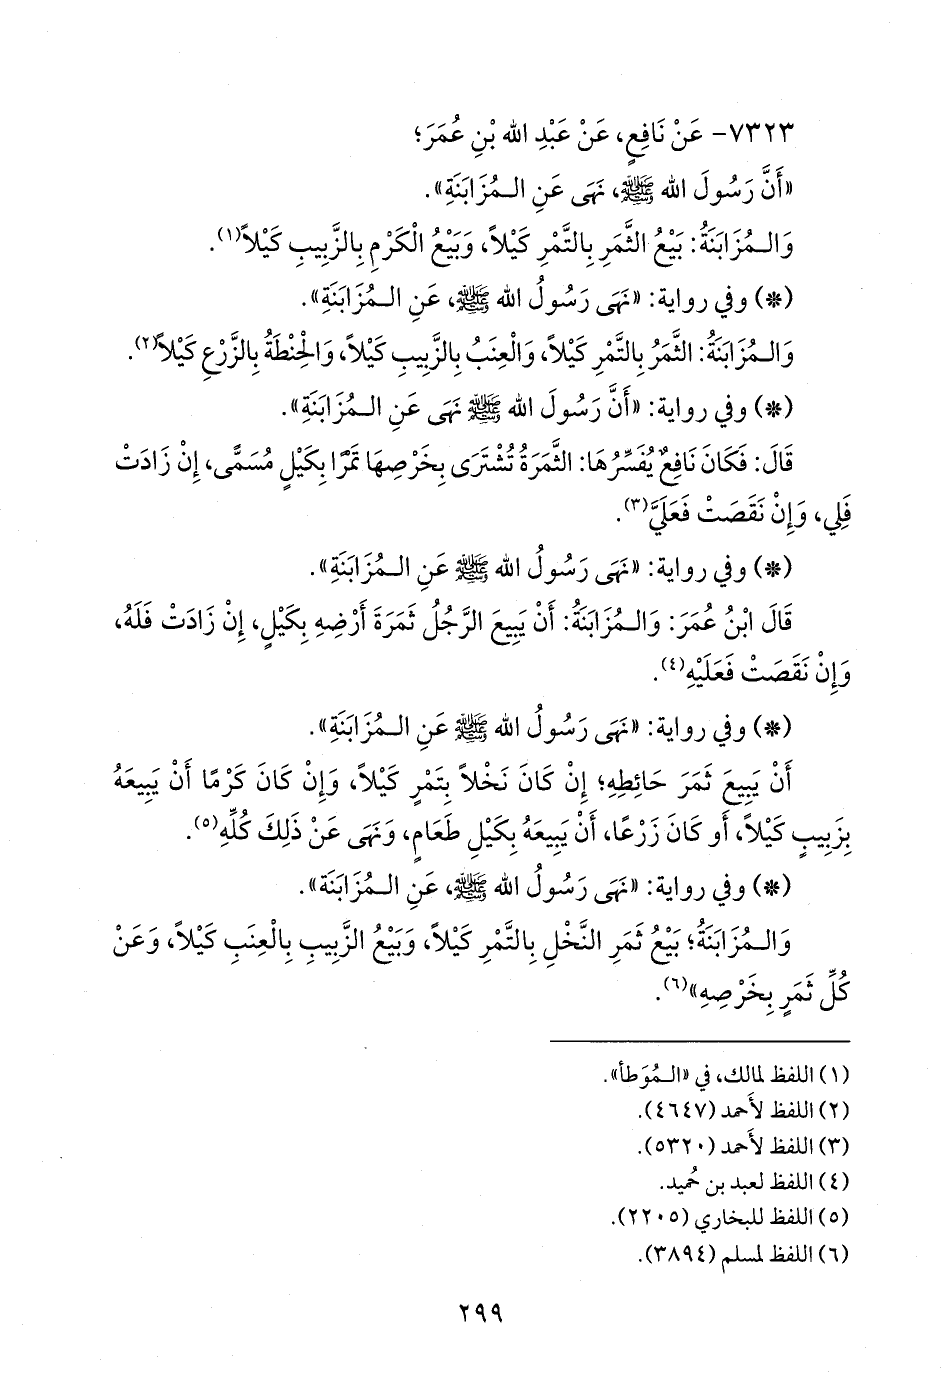 ٧٣٢٣- عَنْ نَافِعٍ، عَنْ عَبْدِ الله بْنِ عُمَرَ؛
«أَنَّ رَسُولَ الله ﷺ، نَهَى عَنِ الـمُزَابَنَةِ».
وَالـمُزَابَنَةُ: بَيْعُ الثَّمَرِ بِالتَّمْرِ كَيْلاً، وَبَيْعُ الْكَرْمِ بِالزَّبِيبِ كَيْلاً»(١).
(*) وفي رواية: «نَهَى رَسُولُ الله ﷺ، عَنِ الـمُزَابَنَةِ».
وَالـمُزَابَنَةُ: الثَّمَرُ بِالتَّمْرِ كَيْلاً، وَالْعِنَبُ بِالزَّبِيبِ كَيْلاً، وَالْحِنْطَةُ بِالزَّرْعِ كَيْلاً»(٢).
(*) وفي رواية: «أَنَّ رَسُولَ الله ﷺ نَهَى عَنِ الـمُزَابَنَةِ».
قَالَ: فَكَانَ نَافِعٌ يُفَسِّرُهَا: الثَّمَرَةُ تُشْتَرَى بِخَرْصِهَا تَمْرًا بِكَيْلٍ مُسَمًّى، إِنْ زَادَتْ
فَلِي، وَإِنْ نَقَصَتْ فَعَلَيَّ(٣).
(*) وفي رواية: «نَهَى رَسُولُ الله ﷺ عَنِ الـمُزَابَنَةِ».
قَالَ ابْنُ عُمَرَ: وَالـمُزَابَنَةُ: أَنْ يَبِيعَ الرَّجُلُ ثَمَرَةَ أَرْضِهِ بِكَيْلٍ، إِنْ زَادَتْ فَلَهُ،
وَإِنْ نَقَصَتْ فَعَلَيْهِ(٤).
(*) وفي رواية: «نَهَى رَسُولُ الله ﷺ عَنِ الـمُزَابَنَةِ».
أَنْ يَبِيعَ ثَمَرَ حَائِطِهِ؛ إِنْ كَانَ نَخْلاً بِتَمْرٍ كَيْلاً، وَإِنْ كَانَ كَرْمًا أَنْ يَبِيعَهُ
بِزَبِيبٍ كَيْلاً، أَو كَانَ زَرْعًا، أَنْ يَبِيعَهُ بِكَيْلِ طَعَامٍ، وَنَهَى عَنْ ذَلِكَ كُلِّهِ(٥).
(*) وفي رواية: «نَهَى رَسُولُ الله ﷺ، عَنِ الـمُزَابَنَة».
وَالـمُزَابَنَةُ؛ بَيْعُ ثَمَرِ النَّخْلِ بِالتَّمْرِ كَيْلاً، وَبَيْعُ الزَّبِيبِ بِالْعِنَبِ كَيْلاً، وَعَنْ
كُلِّ ثَمَرٍ بِخَرْصِهِ»(٦).
(١) اللفظ لمالك، في «الـمُوَطأ».
(٢) اللفظ لأَحمد (٤٦٤٧).
(٣) اللفظ لأَحمد (٥٣٢٠).
(٤) اللفظ لعبد بن حُميد.
(٥) اللفظ للبخاري (٢٢٠٥).
(٦) اللفظ لمسلم (٣٨٩٤).
٢٩٩